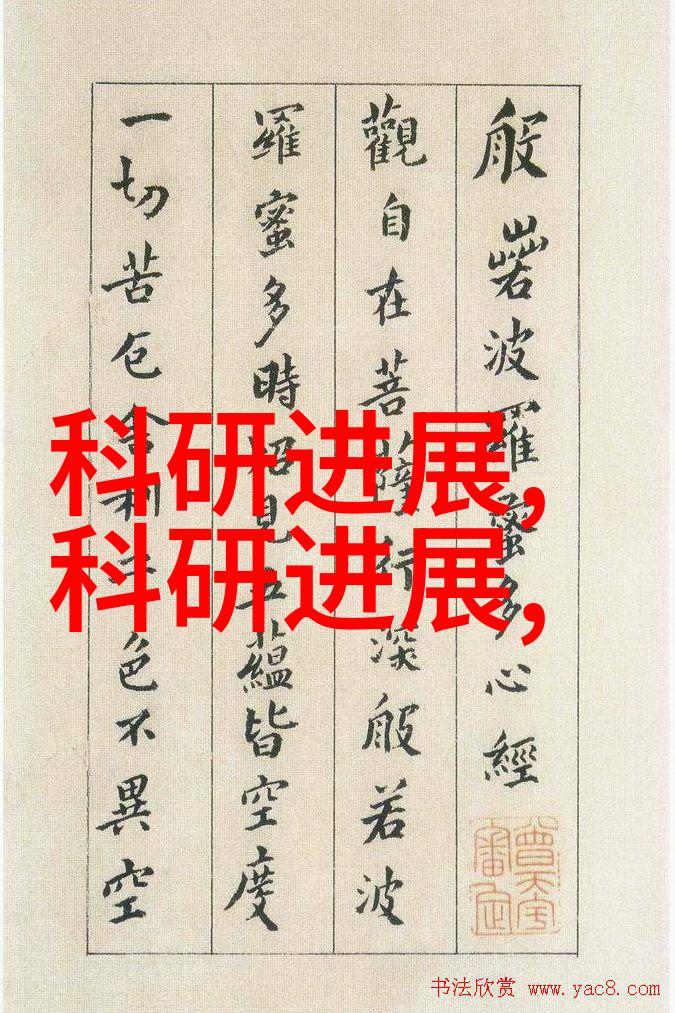 般若波羅蜜多心經
觀自在菩薩行深般若波
羅蜜多時照見五蘊皆空度
一切苦厄舍利子色不異空
科研进展,
科研进展,
书法欣赏 www.yac8.com